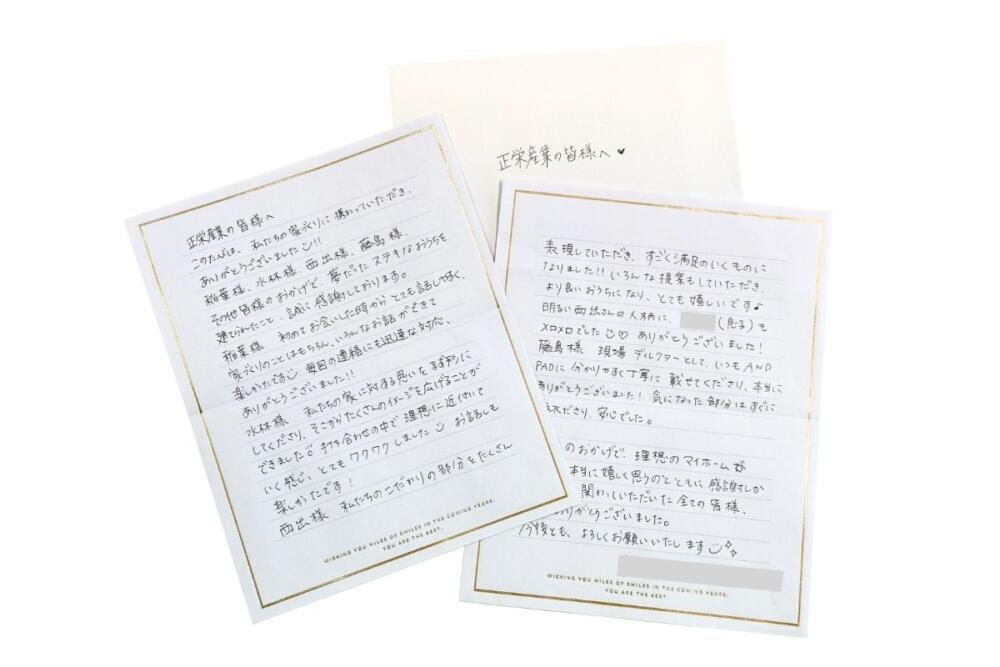 正栄産業の皆様へ♥
正栄産業の皆様へ
このたびは、私たちの家づくりに携わっていただき、
ありがとうございました!!
稲葉様、水林様、西出様、藤島様、
その他皆様のおかげで、夢だったステキなおうちを
建てられたこと、誠に感謝しております。
稲葉様 初めてお会いした時からとても話しやすく、
家づくりのことはもちろん、いろんなお話ができて
楽しかったです 毎回の連絡にも迅速な対応、
ありがとうございました!!
水林様 私たちの家に対する思いをまず形に
してくださり、そこからたくさんのイメージを広げることが
できました 打ち合わせの中で理想に近付いて
いく感じ、とてもワクワクしました お話しも
楽しかったです!
西出様 私たちのこだわりの部分をたくさん
WISHING YOU MILES OF SMILES IN THE COMING YEARS.
YOU ARE THE BEST.
表現していただき、すごく満足のいくものに
なりました!! いろんな提案もしていただき、
より良いおうちになり、とても嬉しいです♪
明るい西出さんの人柄に、(息子)も
メロメロでした♡ ありがとうございました!
藤島様 現場ディレクターとして、いつもAND
PADに分かりやすく丁寧に載せてくださり、本当に
ありがとうございました! 気になった部分はすぐに
えくださり、安心でした。
のおかげで、理想のマイホームが
本当に嬉しく思うのとともに感謝しか
関わっていただいた全ての皆様、
ありがとうございました。
今後とも、よろしくお願いいたします
WISHING YOU MILES OF SMILES IN THE COMING YEARS.
YOU ARE THE BEST.